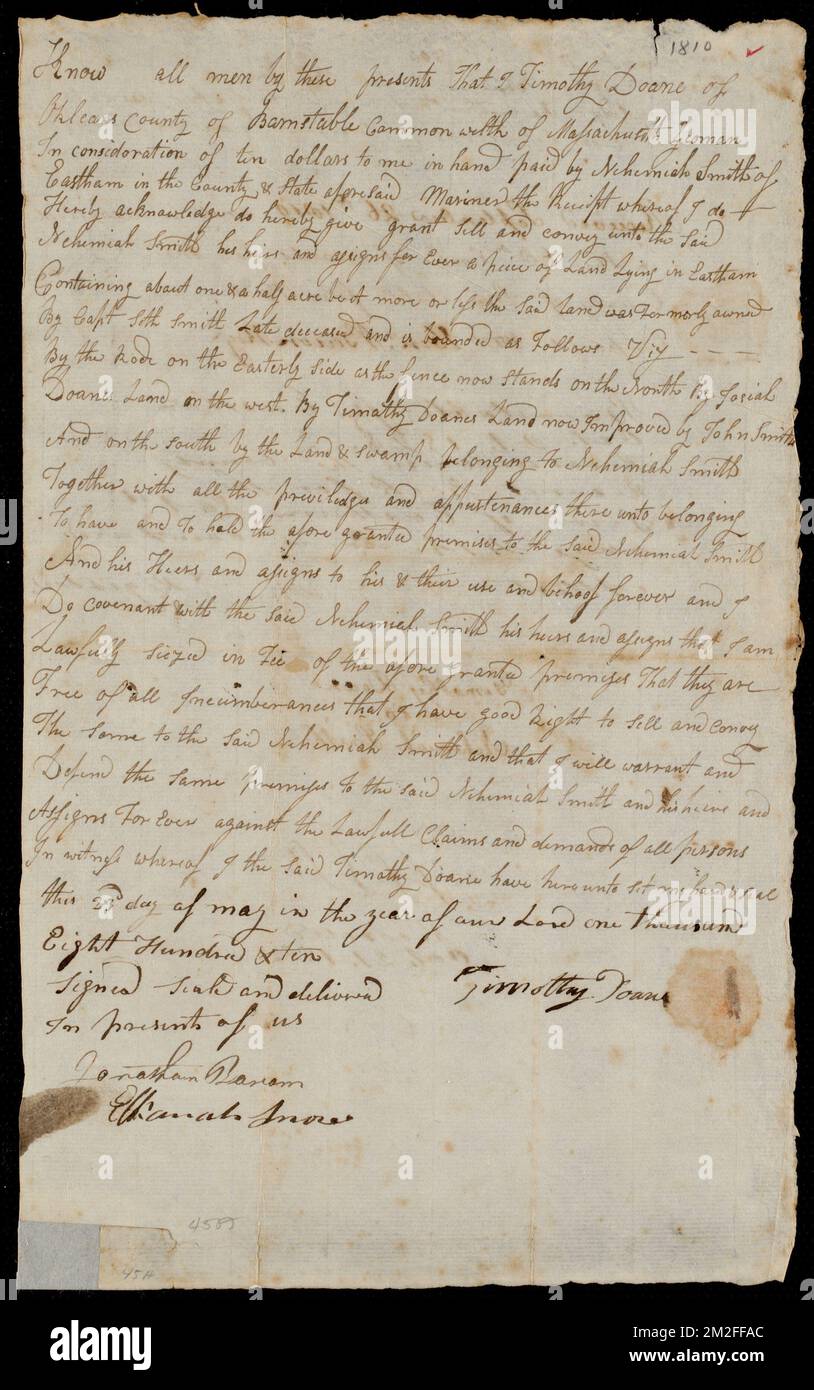 1810
Know all men by these presents That I Timothy Doane of
Orleans County of Barnstable Common welth of Massachusetts yeoman
In consideration of ten dollars to me in hand paid by Nehemiah Smith of
Eastham in the County & State aforesaid Mariner the Receipt whereof I do
Hereby acknowledge do hereby give grant Sell and convey unto the Said
Nehemiah Smith his heirs and assigns for Ever a piece of Land Lying in Eastham
Containing about one & a half acre be it more or less the Said Land was Formerly owned
By Capt Seth Smith Late deceased and is bounded as Follows Viz - - -
By the Rode on the Easterly Side as the fence now Stands on the North By Josiah
Doanes Land on the west. By Timothy Doanes Land now Improved by John Smith
And on the South by the Land & Swamp belonging to Nehemiah Smith
Together with all the priviledges and appurtenances there unto belonging
To have and To hold the afore granted premises to the Said Nehemiah Smith
And his Heirs and assigns to his & their use and behoof forever and I
Do covenant with the Said Nehemiah Smith his heirs and assigns that I am
Lawfully Seized in Fee of the afore granted premises That they are
Free of all Incumberances that I have good Right to Sell and Convey
The Same to the Said Nehemiah Smith and that I will warrant and
Defend the Same premises to the Said Nehemiah Smith and his heirs and
Assigns For Ever against the Lawfull Claims and demands of all persons
In witness whereof I the Said Timothy Doane have here unto Set my hand & Seal
this 23d day of may in the year of our Lord one Thousand
Eight Hundred & ten
Signed Seald and delivered
In presents of us
Timothy Doane
Jonathan
Elkanah Snow
4585
45H
alamy
Image ID: 2M2FFAC
www.alamy.com